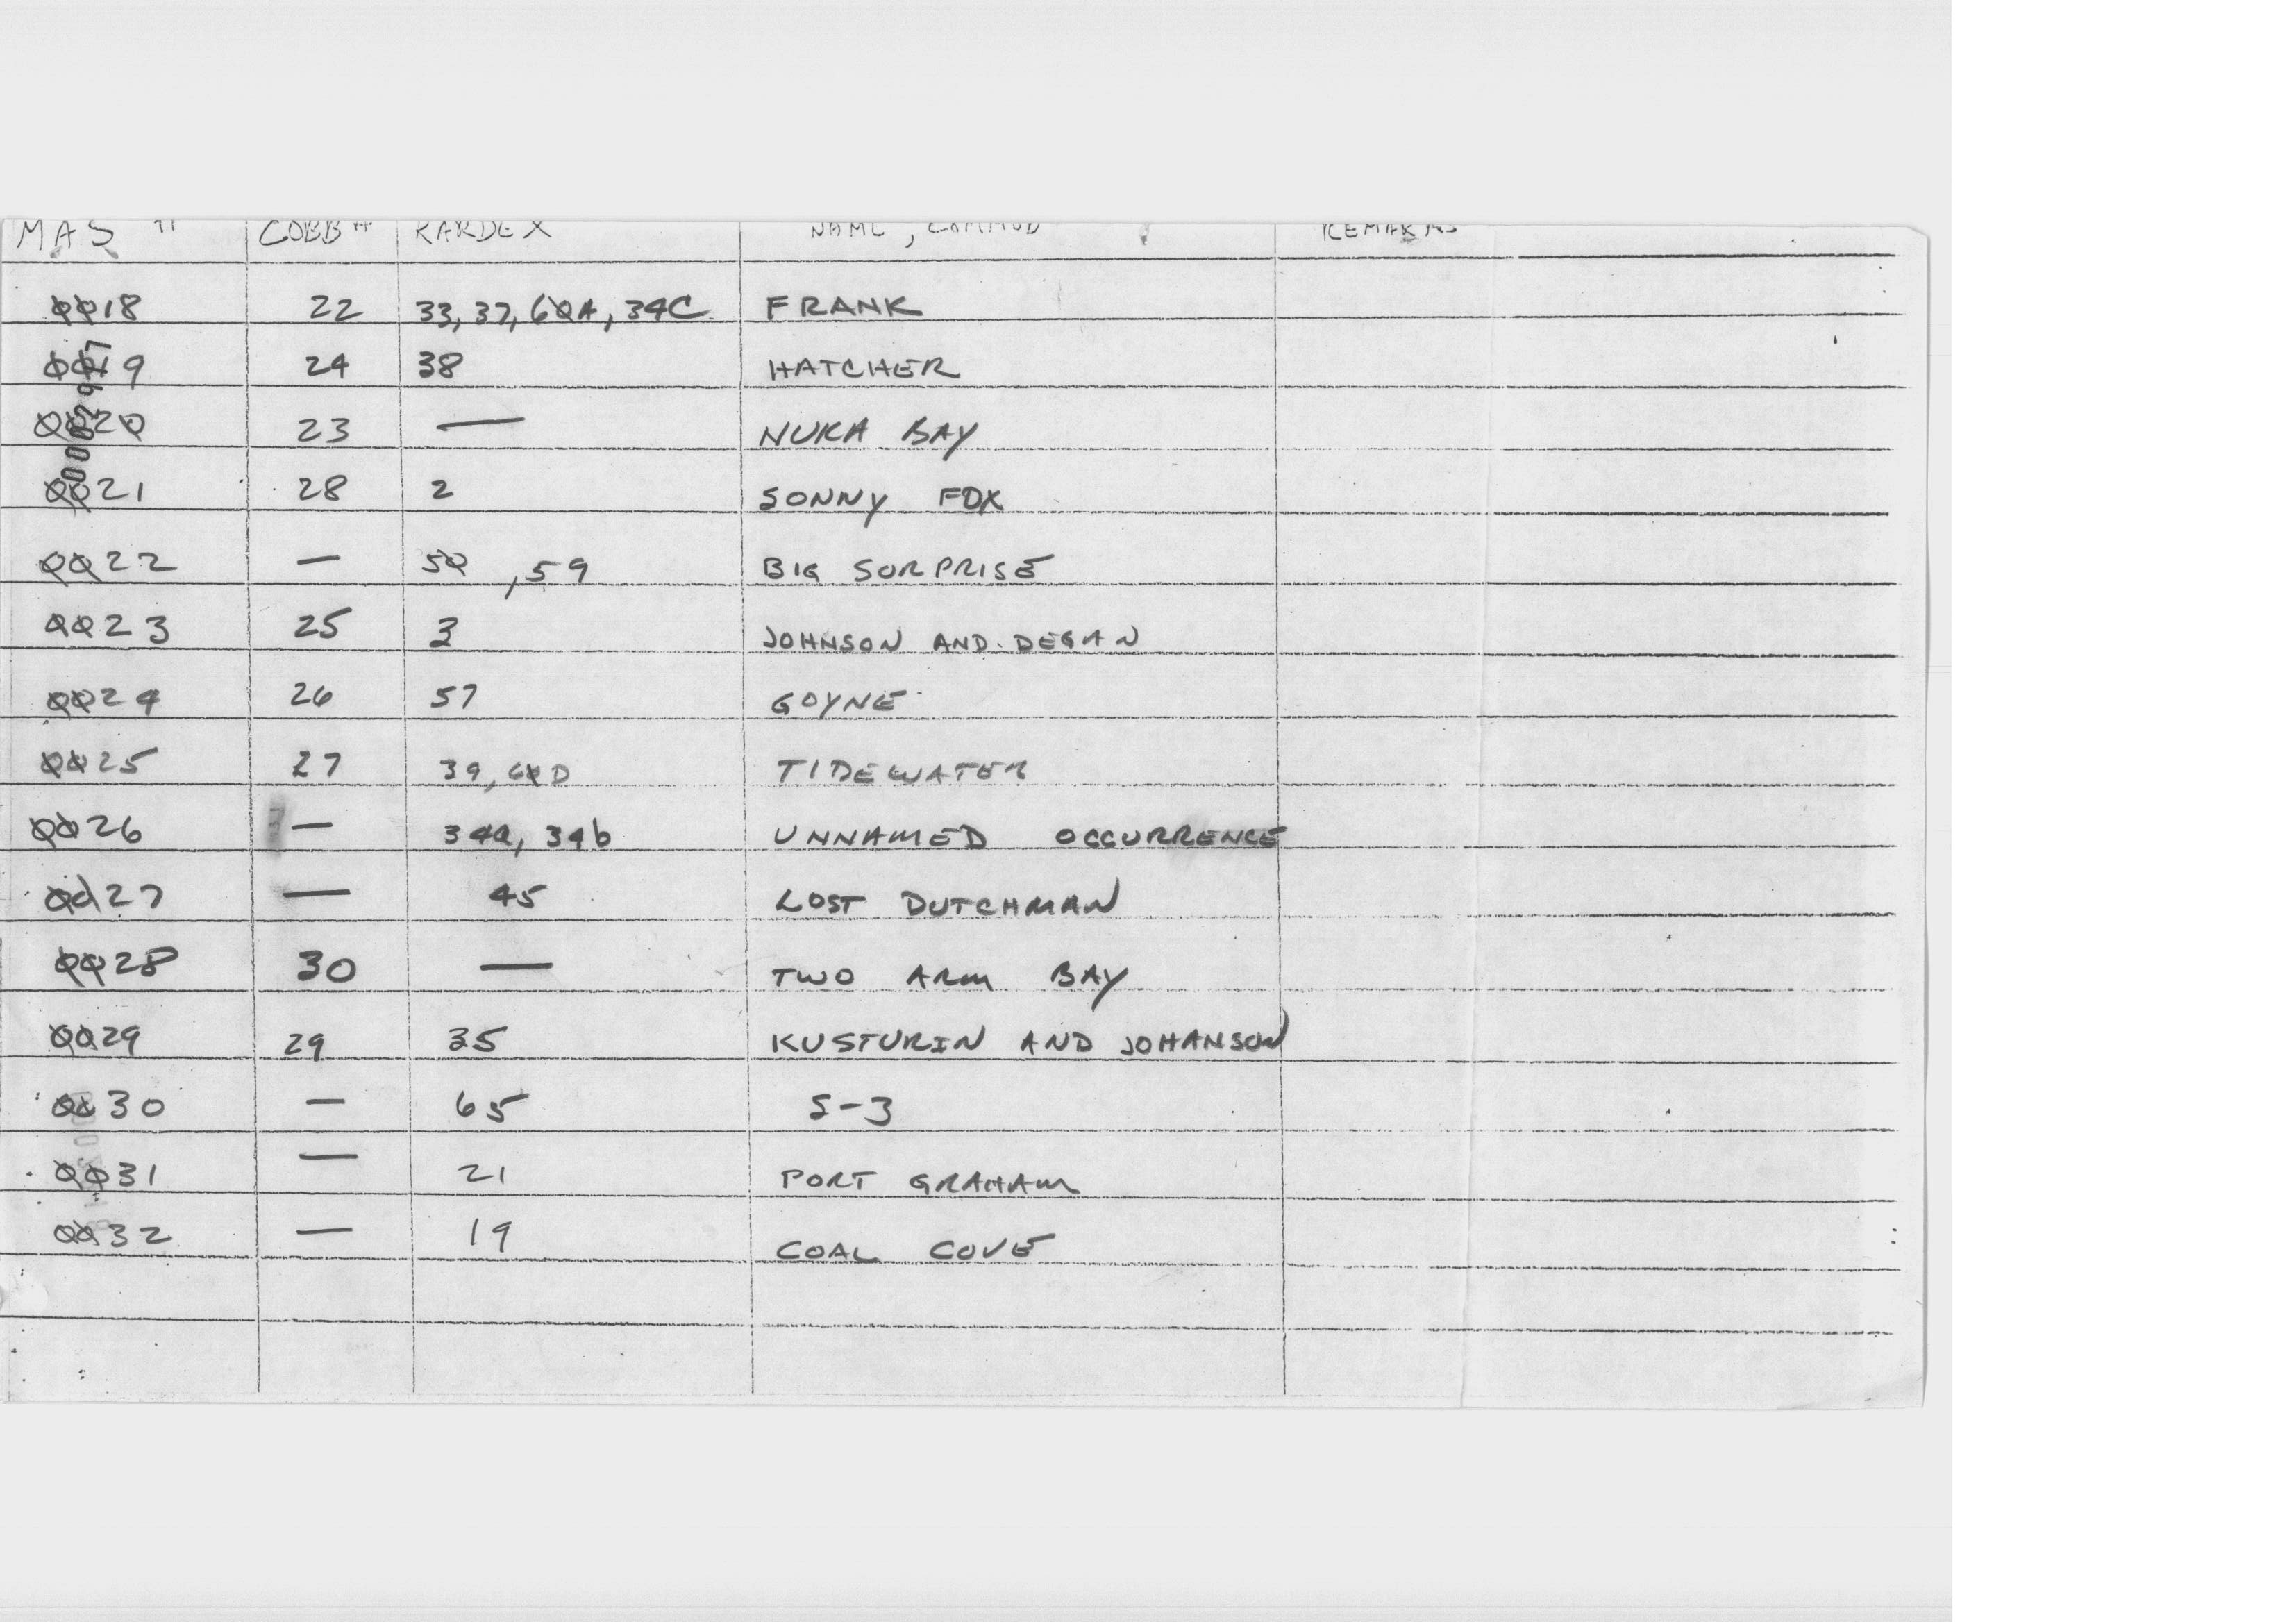 MAS # COBB # KARDEX NAME, COMMOD REMARKS
0018 22 33, 37, 60A, 34C FRANK
0019 24 38 HATCHER
0020 23 — NUKA BAY
0021 28 2 SONNY FOX
0022 — 50, 59 BIG SURPRISE
0023 25 3 JOHNSON AND DEGAN
0024 26 57 GOYNE
0025 27 39, 60D TIDEWATER
0026 — 34a, 34b UNNAMED OCCURRENCE
0027 — 45 LOST DUTCHMAN
0028 30 — TWO ARM BAY
0029 29 35 KUSTURIN AND JOHANSON
0030 — 65 S-3
0031 — 21 PORT GRAHAM
0032 — 19 COAL COVE